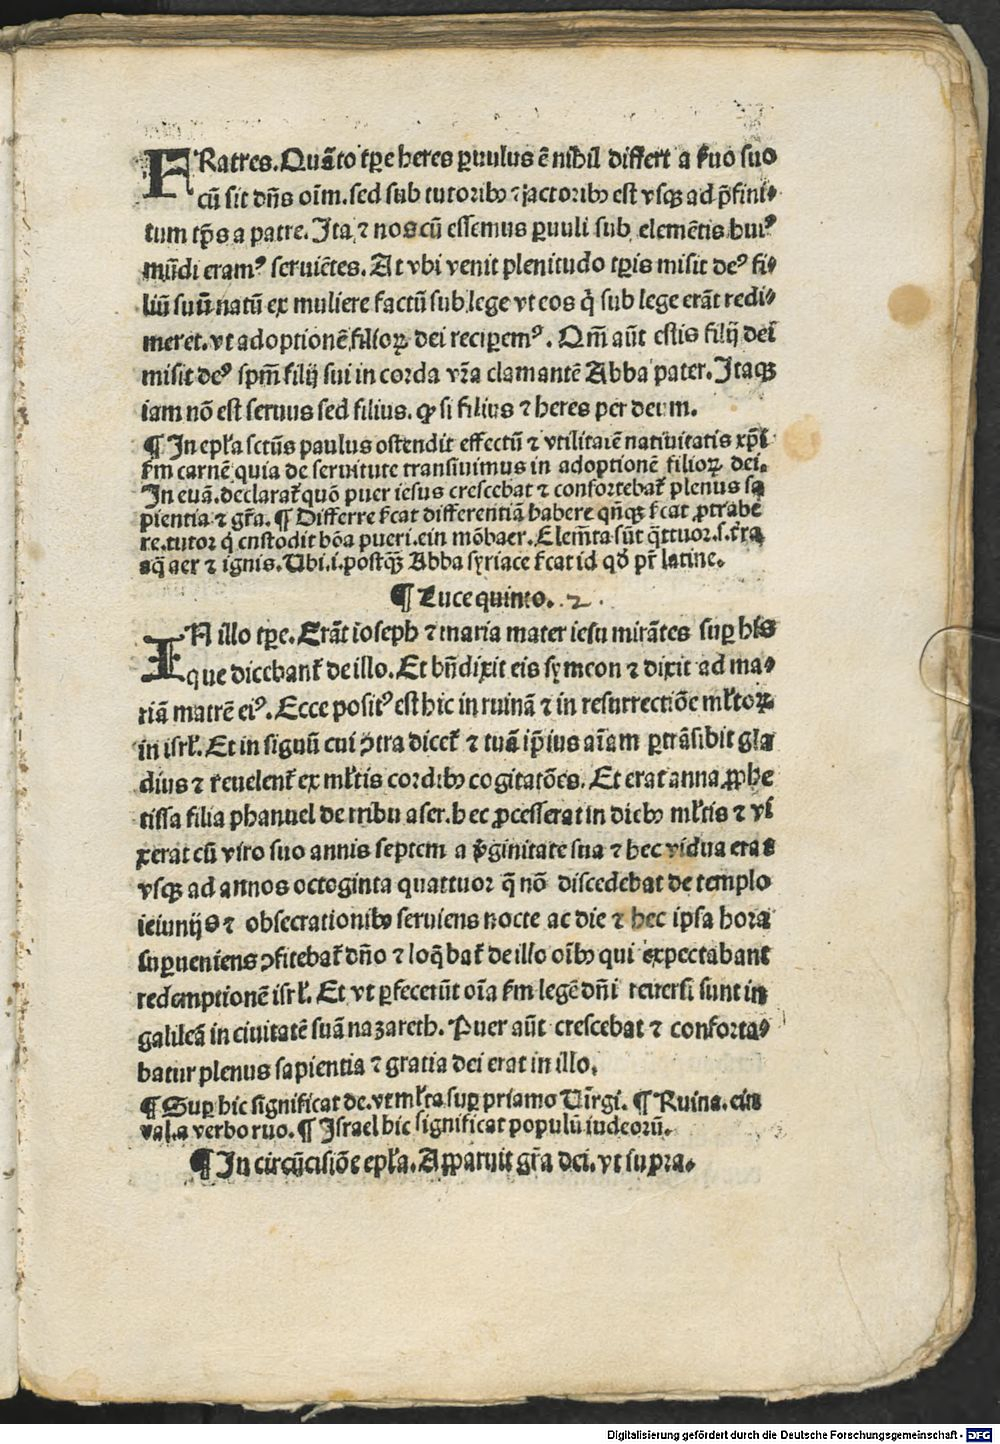 FRatres. Quāto tꝑe heres ꝑuulus ē nihil differt a ẜuo suo
cū sit dn̄s oīm. sed sub tutoribꝰ ⁊ actoribꝰ est vsqꝫ ad p̄fini⸗
tum tp̄s a patre. Ita ⁊ nos cū essemus ꝑuuli sub elemētis huiꝰ
mūdi eramꝰ seruiētes. At vbi venit plenitudo tꝑis misit deꝰ fi⸗
liū suū natū ex muliere factū sub lege vt eos q̇ sub lege erāt redi⸗
meret. vt adoptionē filioꝝ dei reciperemꝰ. Qm̄ aūt estis filij dei
misit deꝰ spm̄ filij sui in corda vr̄a clamantē Abba pater. Itaqꝫ
iam nō est seruus sed filius. ꝙ si filius ⁊ heres per deum.
¶ In epl̄a sctūs paulus ostendit effectū ⁊ vtilitatē natiuitatis xp̄i
ẜm carnē quia de seruitute transiuimus in adoptionē filioꝝ dei.
In euā. declarat᷑ quō puer iesus crescebat ⁊ confortebat᷑ plenus sa
pientia ⁊ gr̄a. ¶ Differre ẜcat differentiā habere qn̄qꝫ ẜcat ꝓtrahe
re. tutor q̇ custodit bōa pueri. ein mōbaer. Elem̄ta sūt q̄ttuor. s. t̄ra
aq̄ aer ⁊ ignis. Vbi. i. postqꝫ̄ Abba syriace ẜcat id qđ pr̄ latine.
¶ Luce quinto. 2.
IN illo tꝑe. Erāt ioseph ⁊ maria mater iesu mirātes suꝑ his
que dicebant᷑ de illo. Et bn̄dixit eis symeon ⁊ dixit ad ma⸗
riā matrē eiꝰ. Ecce positꝰ est hic in ruinā ⁊ in resurrectiōe ml̄toꝝ
in isrl̄. Et in signū cui ꝯtra dicet᷑ ⁊ tuā ip̄ius aīam ꝑtrāsibit gla
dius ⁊ reuelent᷑ ex ml̄tis cordibꝰ cogitatōes. Et erat anna ꝓphe
tissa filia phanuel de tribu aser. hec ꝓcesserat in diebꝰ ml̄tis ⁊ vi
xerat cū viro suo annis septem a v̄ginitate sua ⁊ hec vidua erat
vsqꝫ ad annos octoginta quattuor q̄ nō discedebat de templo
ieiunijs ⁊ obsecrationibꝰ seruiens nocte ac die ⁊ hec ipsa hora
suꝑueniens ꝯfitebat᷑ dn̄o ⁊ loq̄bat᷑ de illo oībꝰ qui expectabant
redemptionē isrl̄. Et vt ꝑfecerūt oīa ẜm legē dn̄i reuersi sunt in
galileā in ciuitatē suā nazareth. Puer aūt crescebat ⁊ conforta⸗
batur plenus sapientia ⁊ gratia dei erat in illo.
¶ Suꝑ hic significat de. vt ml̄ta suꝑ priamo Virgi. ¶ Ruina. ein
val. a verbo ruo. ¶ Israel hic significat populū iudeorū.
¶ In circūcisiōe epl̄a. Apparuit gr̄a dei. vt supra.
Digitalisierung gefördert durch die Deutsche Forschungsgemeinschaft - DFG